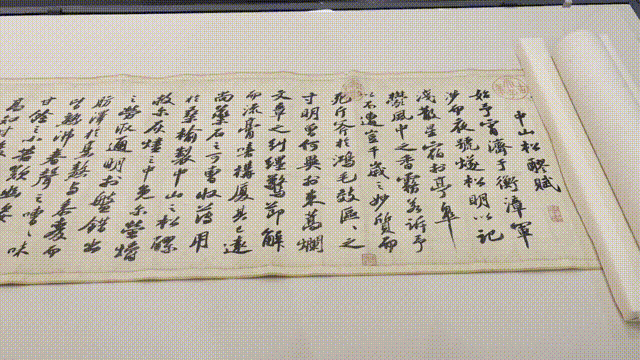 中山松醪賦
始予宵濟於衡漳軍
涉而夜號燧松明以記
淺散星宿於亭皐
鬱風中之香霧若訴予
以不遭豈千歲之妙質而
死斤斧於鴻毛效區〻之
寸明曾何異於束蒿爛
文章之糾纆驚節解
而流膏嘻構厦其已遠
尚藥石之可曹收薄用
於桑榆製中山之松醪
救爾灰燼之中免爾螢爝
之勞取通明於盤錯出
肪澤於烹熬與黍麥而
皆熟沸舂聲之嘈〻味
甘餘之小苦歎幽姿之獨
高知甘酸之